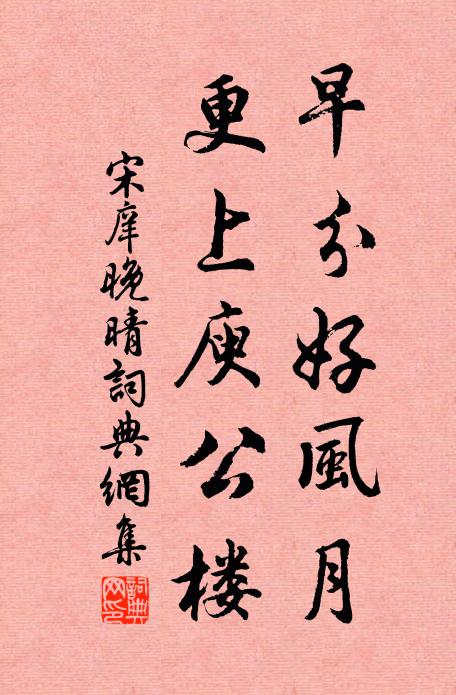 早分好風月
更上庾公楼
宋庠晚晴詞典網集
詞典網印